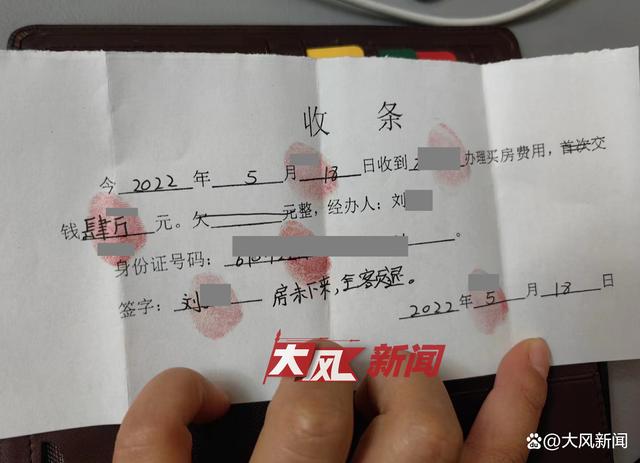 收 条
今 2022 年 5 月 18 日收到 办理买房费用，首次交
钱肆万元。欠 元整，经办人：刘
身份证号码： 。
签字：刘 房未下来，全客退。
2022年 5 月 18 日
大风新闻
@大风新闻